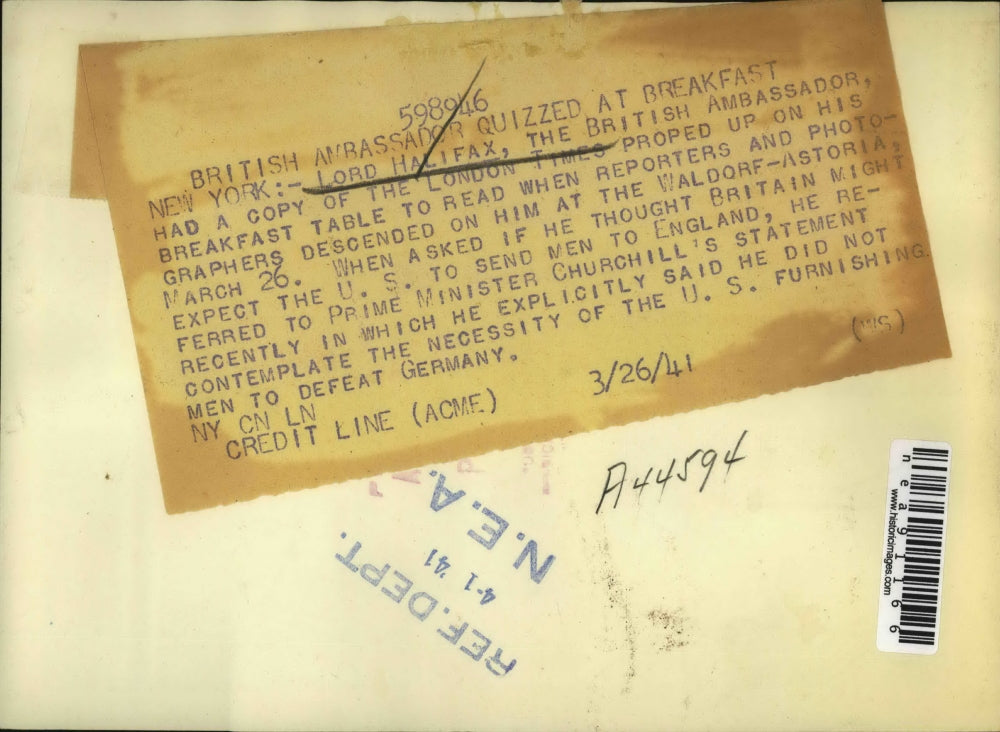 598946
BRITISH AMBASSADOR QUIZZED AT BREAKFAST
NEW YORK:- LORD HALIFAX, THE BRITISH AMBASSADOR,
HAD A COPY OF THE LONDON TIMES PROPED UP ON HIS
BREAKFAST TABLE TO READ WHEN REPORTERS AND PHOTO-
GRAPHERS DESCENDED ON HIM AT THE WALDORF-ASTORIA,
MARCH 26. WHEN ASKED IF HE THOUGHT BRITAIN MIGHT
EXPECT THE U. S. TO SEND MEN TO ENGLAND, HE RE-
FERRED TO PRIME MINISTER CHURCHILL'S STATEMENT
RECENTLY IN WHICH HE EXPLICITLY SAID HE DID NOT
CONTEMPLATE THE NECESSITY OF THE U. S. FURNISHING
MEN TO DEFEAT GERMANY.
NY CN LN
(WS)
CREDIT LINE (ACME)
3/26/41
A44594
N.E.A.
4-1 '41
REF. DEPT.
nea91166
www.historicimages.com